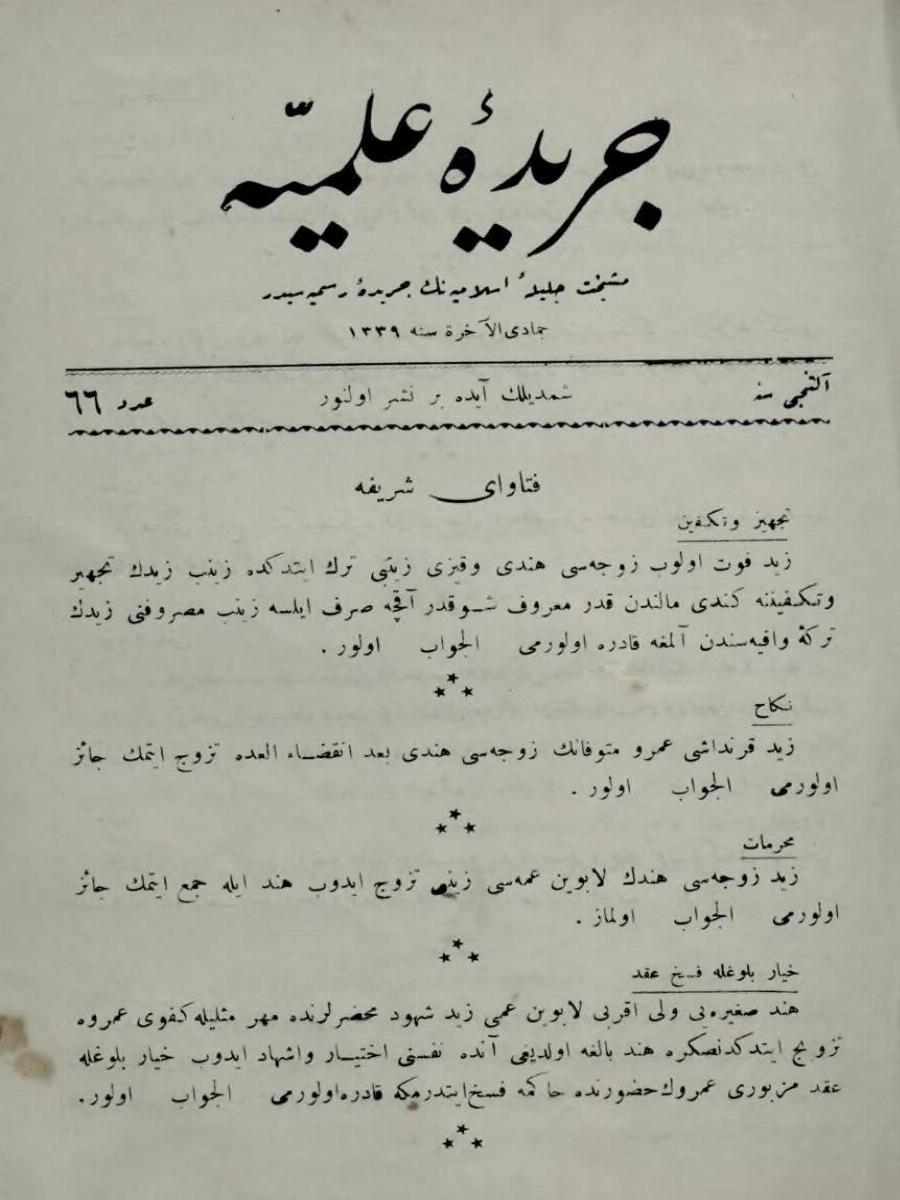 جريدۀ علميّه
مشيخت جليلۀ اسلاميه‌نك جريدۀ رسميه‌سيدر
جمادى الآخرة سنه ١٣٣٩
آلتنجى سنه شمديلك آيده بر نشر اولنور عدد ٦٦
فتاواى شريفه
تجهيز وتكفين
زيد فوت اولوب زوجه‌سى هندى وقيزى زينبى ترك ايتدكده زينب زيدك تجهيز
وتكفيننه كندى مالندن قدر معروف شوقدر آقچه صرف ايلسه زينب مصروفنى زيدك
تركۀ وافيه‌سندن آلمغه قادره اولورمى الجواب اولور .
نكاح
زيد قرنداشى عمرو متوفانك زوجه‌سى هندى بعد انقضاء العده تزوج ايتمك جائز
اولورمى الجواب اولور .
محرمات
زيد زوجه‌سى هندك لابوين عمه‌سى زينبى تزوج ايدوب هند ايله جمع ايتمك جائز
اولورمى الجواب اولماز .
خيار بلوغله فسخ عقد
هند صغيره‌يى ولى اقربى لابوين عمى زيد شهود محضرلرنده مهر مثليله كفوى عمروه
تزويج ايتدكدنصكره هند بالغه اولديغى آنده نفسنى اختيار واشهاد ايدوب خيار بلوغله
عقد مزبورى عمروك حضورنده حاكمه فسخ ايتدرمكه قادره اولورمى الجواب اولور.